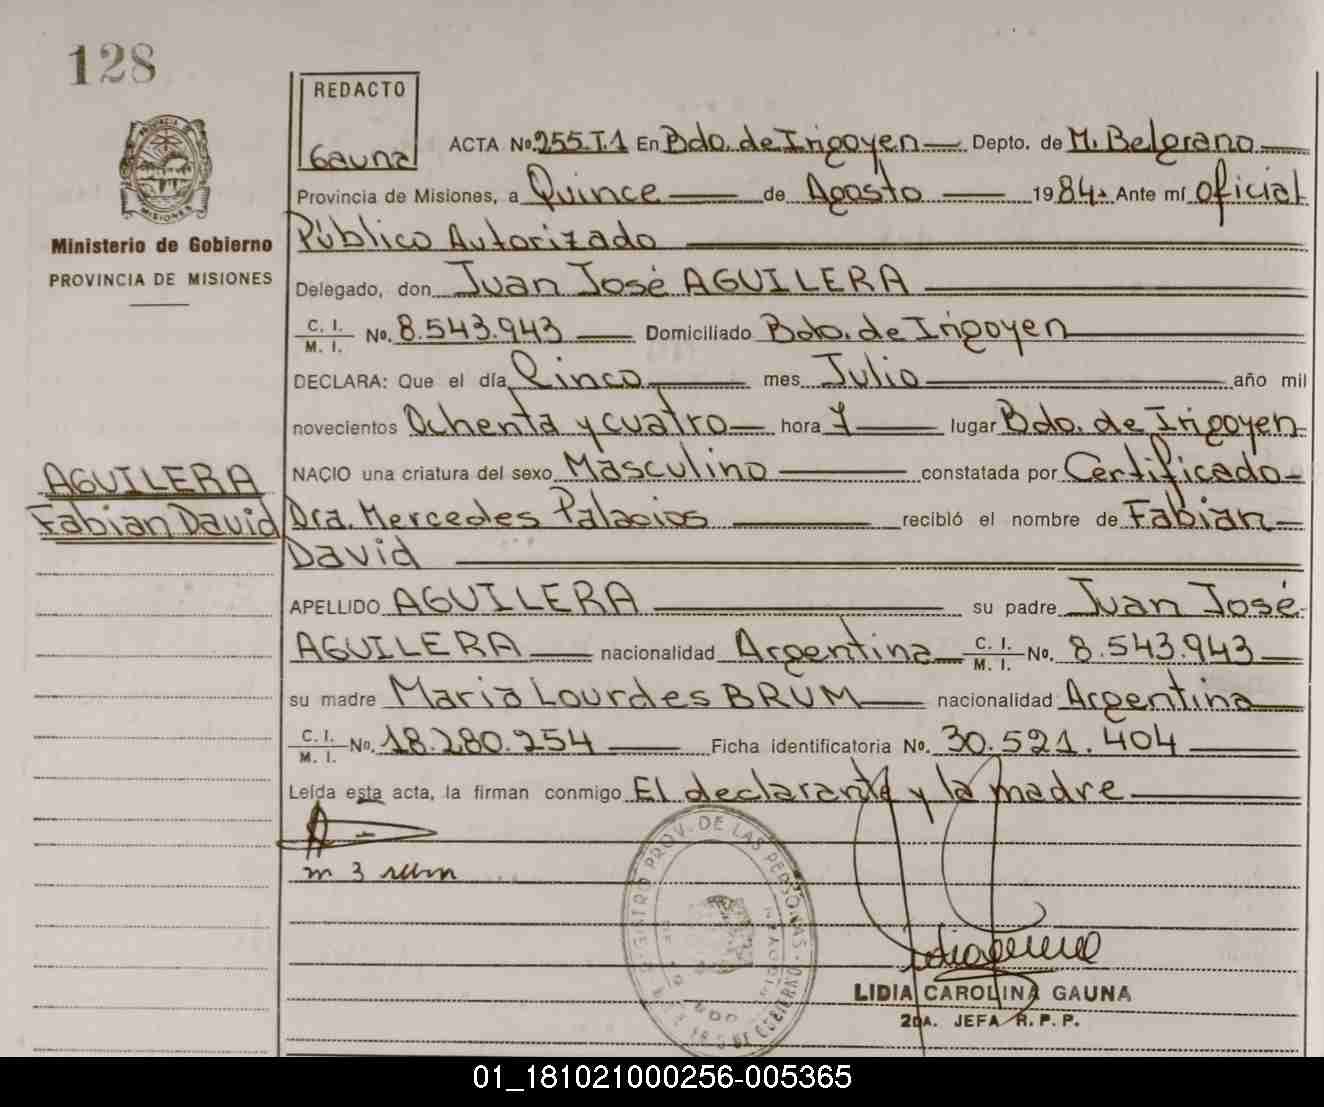 128
REDACTO
Gauna
ACTA No. 255.T.1 En Bdo. de Irigoyen Depto. de M. Belgrano
Provincia de Misiones, a Quince de Agosto 1984. Ante mí oficial
Público Autorizado
Delegado, don Juan José AGUILERA
C. I.
M. I. No. 8.543.943 Domiciliado Bdo. de Irigoyen
DECLARA: Que el día Cinco mes Julio año mil
novecientos Ochenta y cuatro hora 7 lugar Bdo. de Irigoyen
NACIO una criatura del sexo Masculino constatada por Certificado
Dra. Mercedes Palacios recibió el nombre de Fabian
David
APELLIDO AGUILERA su padre Juan José
AGUILERA nacionalidad Argentina C. I. M. I. No. 8.543.943
su madre Maria Lourdes BRUM nacionalidad Argentina
C. I.
M. I. No. 18.280.254 Ficha identificatoria No. 30.521.404
Leída esta acta, la firman conmigo El declarante y la madre
PROVINCIA DE
MISIONES
Ministerio de Gobierno
PROVINCIA DE MISIONES
AGUILERA
Fabian David
PROV. DE LAS PERSONAS
LIDIA CAROLINA GAUNA
2DA. JEFA R. P. P.
01_181021000256-005365